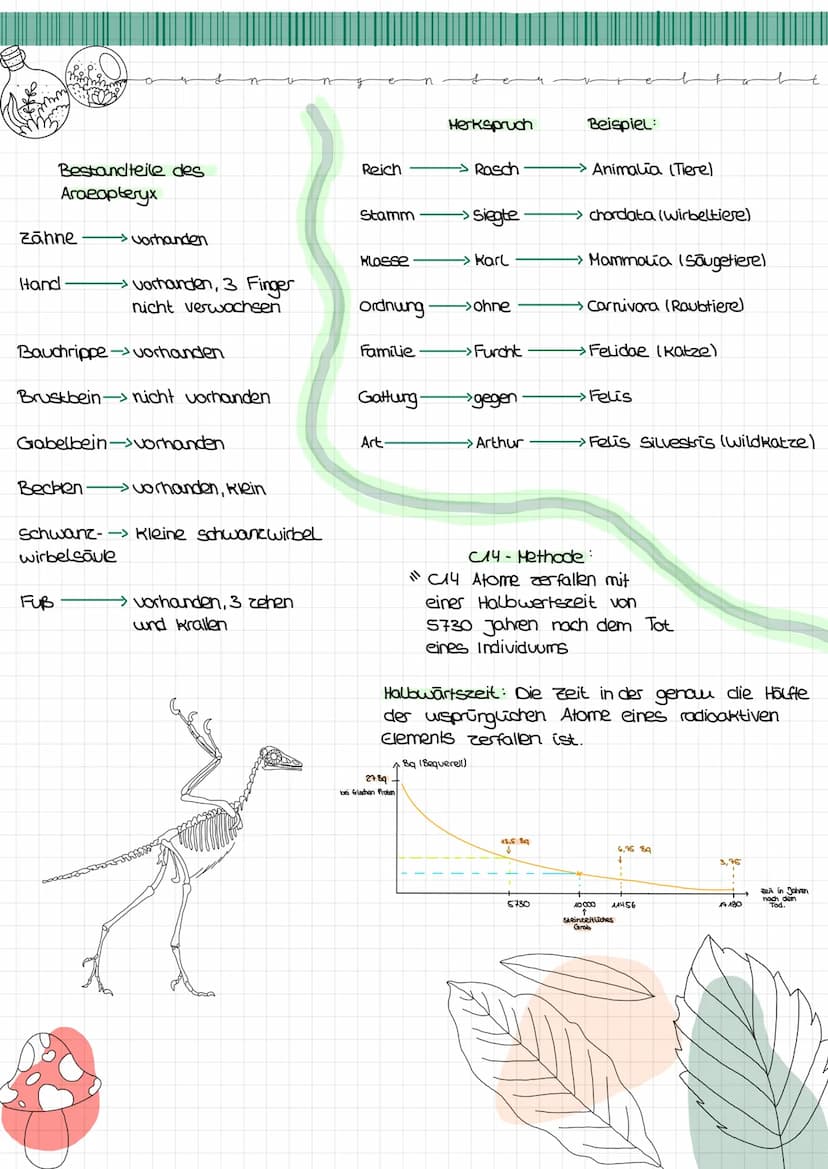 ordnungen der vielfalt
Bestandteile des
Araeopteryx
Zähne → vorhanden
Hand → vorhanden, 3 Finger
nicht verwachsen
Bauchrippe → vorhanden
Brustbein → nicht vorhanden
Gabelbein → vorhanden
Becken → vorhanden, klein
Schwanz- → kleine schwanzwirbel
wirbelsäule
Fuß → vorhanden, 3 zehen
und krallen
Merkspruch Beispiel:
Reich → Rasch → Animalia (Tiere)
Stamm → Siegte → chordata (Wirbeltiere)
Klasse → Karl → Mammalia (Säugetiere)
Ordnung → ohne → Carnivora (Raubtiere)
Familie → Furcht → Felidae (Katze)
Gattung → gegen → Felis
Art → Arthur → Felis Silvestris (Wildkatze)
C14 - Methode:
C14 Atome zerfallen mit
einer Halbwertszeit von
5730 Jahren nach dem Tot
eines Individuums
Halbwärtszeit: Die Zeit in der genau die Hälfte
der ursprünglichen Atome eines radioaktiven
Elements zerfallen ist.
Bq (Bequerell)
27 Bq
bei frischen Proben
13,5 Bq
6,75 Bq
3,75
5730 10 000 11456 14180
Zeit in Jahren
nach dem
Tod.
steinzeitliches
Grab